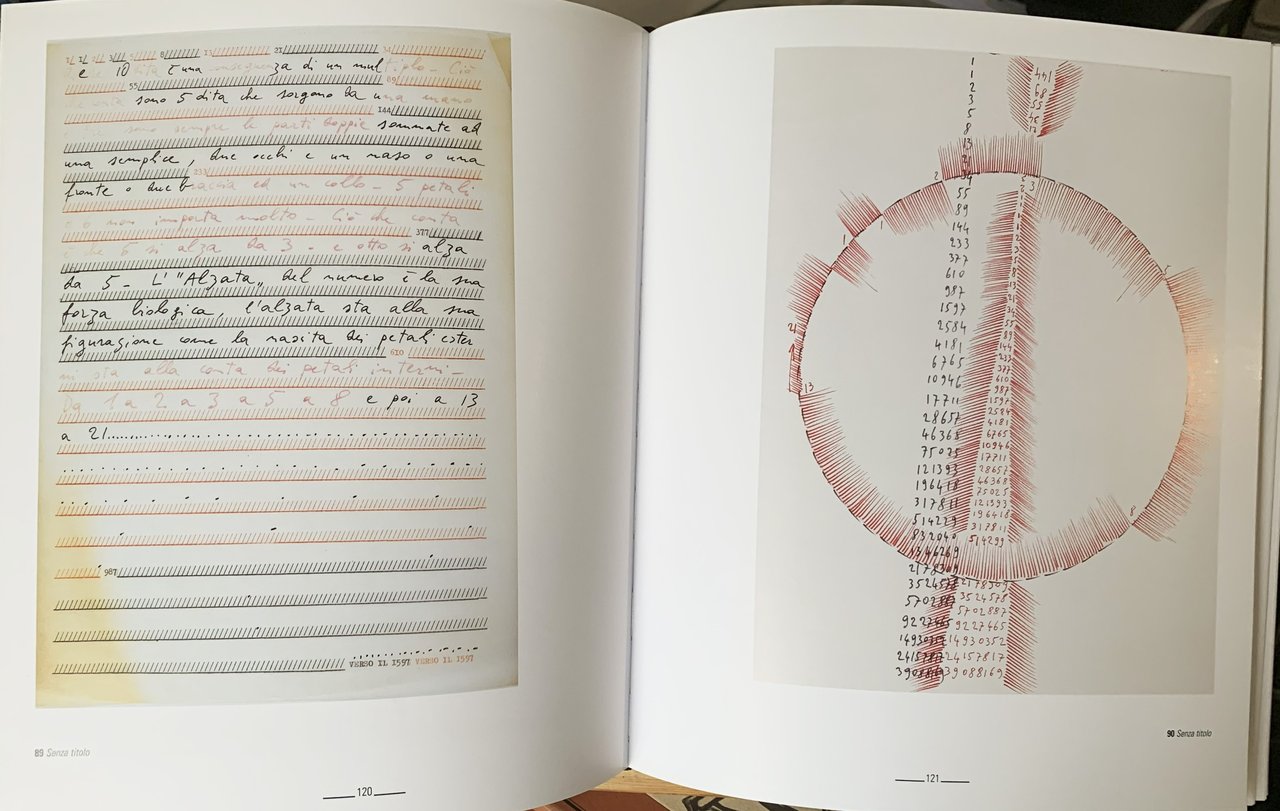 1/ 1/ 2// 3/// 5///// 8//////// 13///////////// 21///////////////////// 34
e 10 dita è una conseguenza di un multiplo - Ciò
55 89
che conta sono 5 dita che sorgono da una mano
144
sono sempre le parti doppie sommate ad
una semplice, due occhi e un naso o una
233
fronte o due braccia ed un collo - 5 petali
o 6 non importa molto - Ciò che conta
377
è che 5 si alza da 3 - e otto si alza
da 5 - L'"Alzata„ del numero è la sua
forza biologica, l'alzata sta alla sua
figurazione come la nascita dei petali ester
610
ni sta alla conta dei petali interni -
Da 1 a 2 a 3 a 5 a 8 e poi a 13
a 21..............................
987
VERSO IL 1597 VERSO IL 1597
89 Senza titolo
120
1
1
2
3
5
8
13
21
34
55
89
144
233
377
610
987
1597
2584
4181
6765
10946
17711
28657
46368
75025
121393
196418
317811
514229
832040
1346269
2178309
3524578
5702887
9227465
14930352
24157817
39088169
144
89
55
34
2
3
1
1
5
21
13
8
1
1
2
3
5
8
13
21
34
55
89
144
233
377
610
987
1597
2584
4181
6765
10946
17711
28657
46368
75025
121393
196418
317811
514299
2178309
3524578
5702887
9227465
14930352
24157817
39088169
90 Senza titolo
121